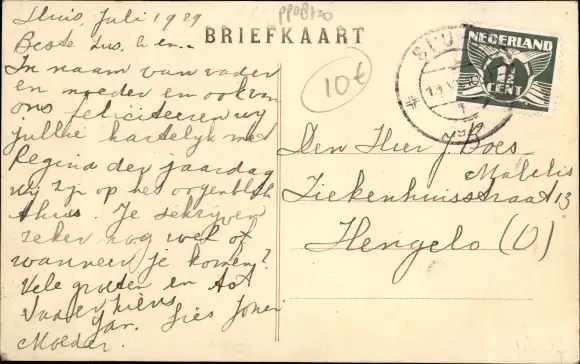 Sluis, Juli 1929
Beste Zus, en
In naam van vader
en moeder en ook van
ons feliciteeren wij
jullie hartelijk met
Regina der jaardag
wij zijn op het oogenblik
thuis. Je schrijven
zeker nog wel of
wanneer je komen?
Vele groeten en tot
Vader
Jan. Lies
Moeder.
BRIEFKAART
10€
NEDERLAND
1½
CENT
Den Heer J. Boes
Ziekenhuisstraat 13
Hengelo (O)